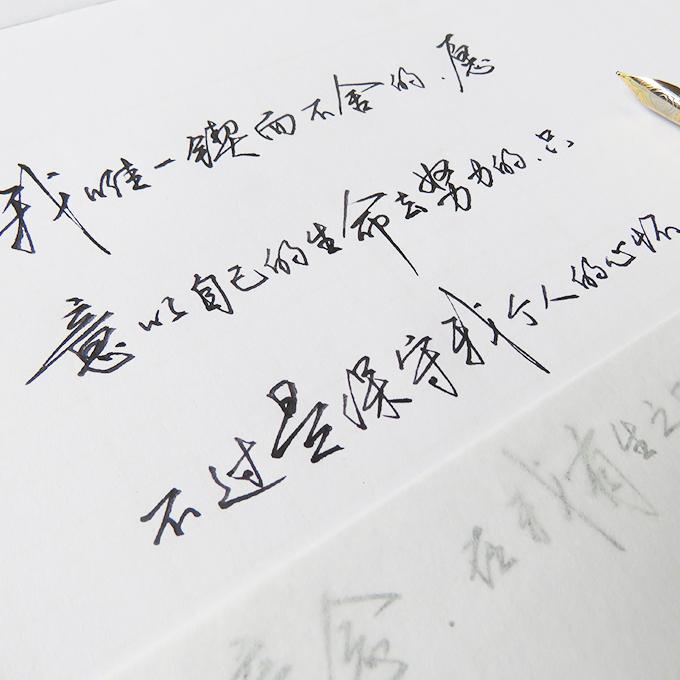 我唯一锲而不舍的.愿
意以自己的生命去努力的.只
不过是保守我个人的心怀
在我有生之